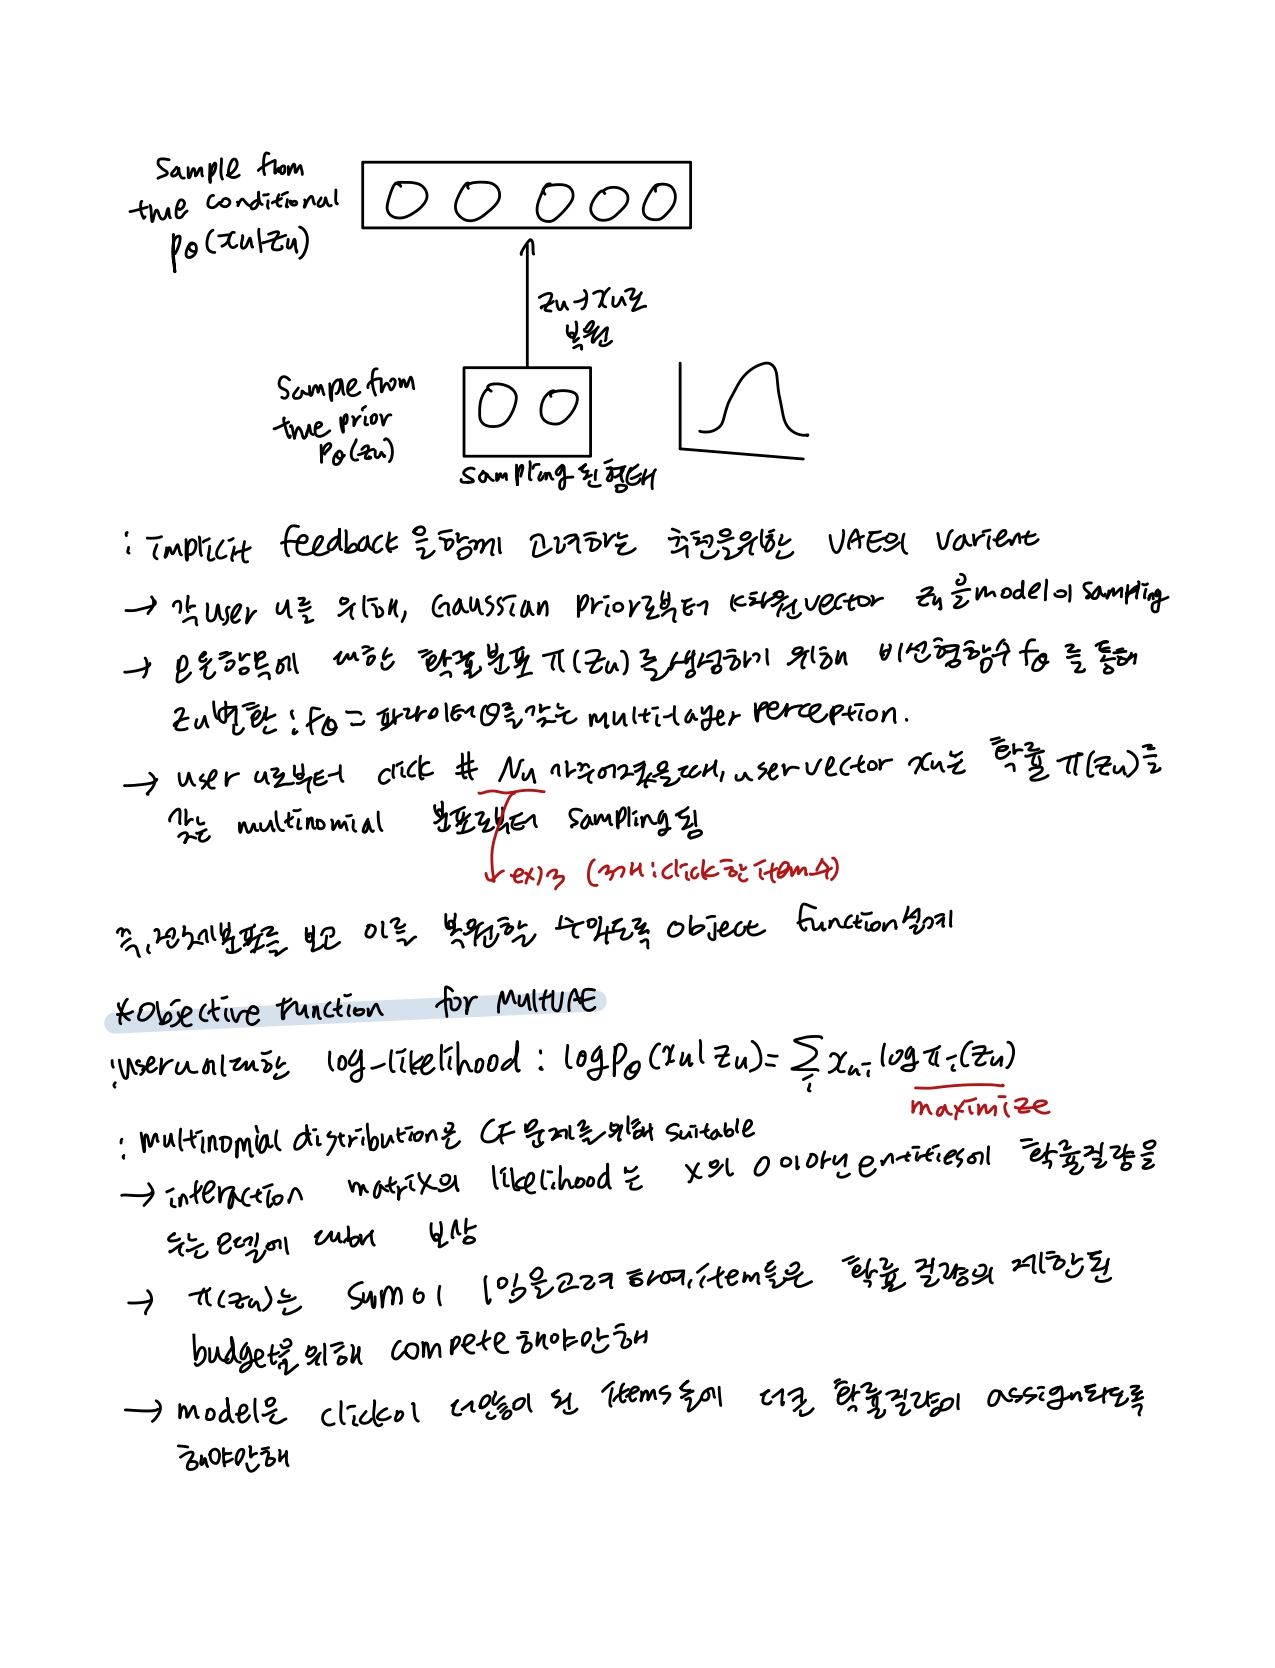 Sample from
true conditional
pθ(xu|zu)
zu→xu로
복원
Sample from
true prior
pθ(zu)
sampling된형태
: implicit feedback을함께 고려하는 추천을위한 VAE의 varient
→ 각user u를 위해, Gaussian prior로부터 k차원vector zu을model이sampling
→ 모든항목에 대한 확률분포 π(zu)를생성하기 위해 비선형함수 fθ를 통해
zu변환 : fθ = 파라미터θ를갖는 multilayer perception.
→ user u로부터 click # Nu 가주어졌을때, user vector xu는 확률 π(zu)를
갖는 multinomial 분포로부터 sampling됨
ex)3 (3개:click한item수)
즉,전체분포를 보고 이를 복원할 수있도록 object function설계
*Objective function for MultVAE
:user u에대한 log-likelihood : log pθ(xu|zu)= Σi xui log πi(zu)
maximize
: multinomial distribution은 CF문제를위해 suitable
→ interaction matrix의 likelihood는 x의 0이아닌entities에 확률질량을
두는모델에 대해 보상
→ π(zu)는 sum이 1임을고려하여,item들은 확률질량의 제한된
budget을위해 compete해야만해
→ model은 click이 더많이 된 items들에 더큰 확률질량이 assign되도록
해야만해